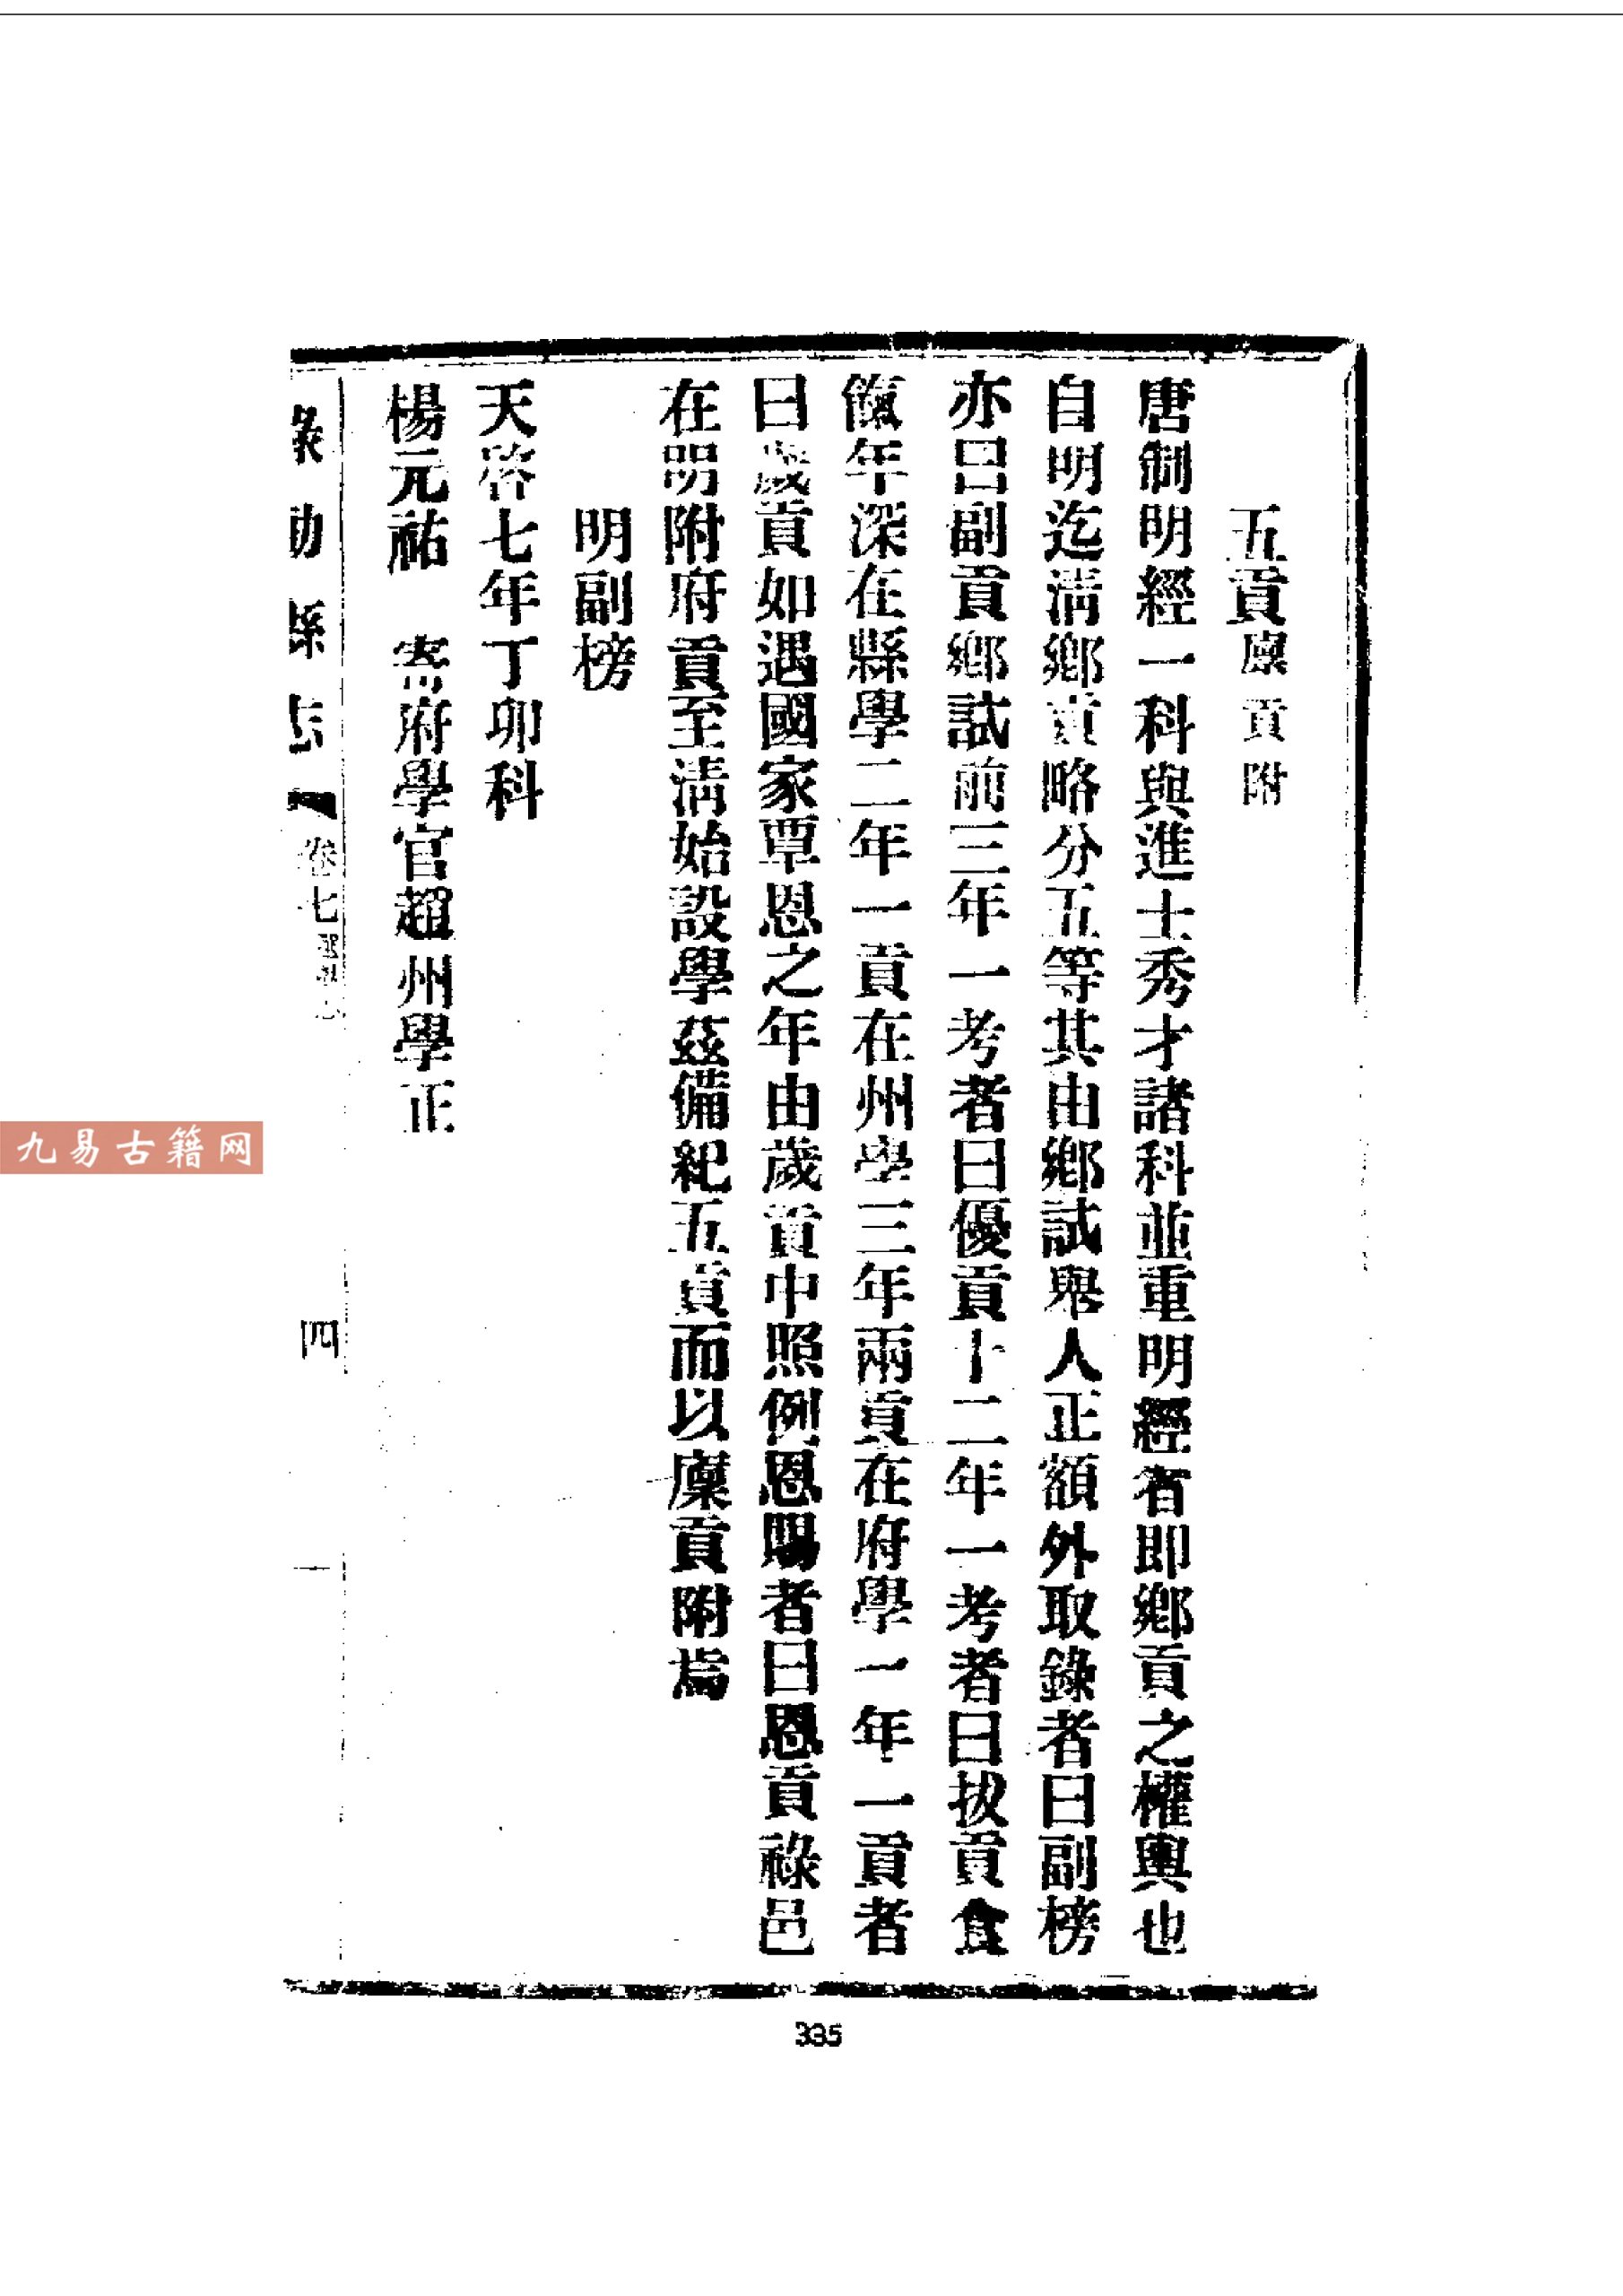 五貢廩貢附
唐制明經一科與進士秀才諸科並重明經者即鄉貢之權輿也
自明迄清鄉貢略分五等其由鄉試舉人正額外取錄者曰副榜
亦曰副貢鄉試前三年一考者曰優貢十二年一考者曰拔貢食
餼年深在縣學二年一貢在州學三年兩貢在府學一年一貢者
曰歲貢如遇國家覃恩之年由歲貢中照例恩賜者曰恩貢祿邑
在明附府貢至清始設學茲備紀五貢而以廩貢附焉
明副榜
天啓七年丁卯科
楊元祐 寄府學官趙州學正
祿勸縣志 卷七 四
335
九易古籍网